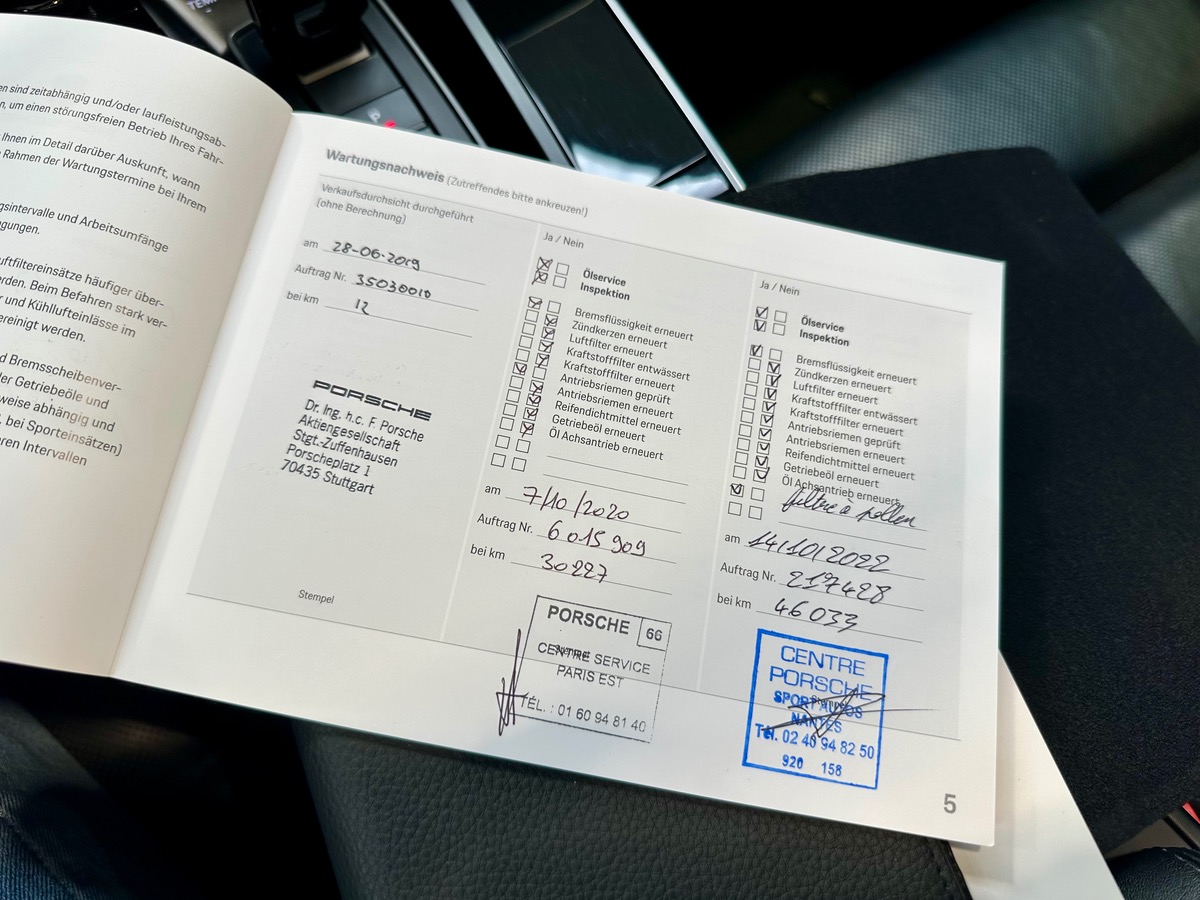 en sind zeitabhängig und/oder laufleistungsab-
n, um einen störungsfreien Betrieb Ihres Fahr-
Ihnen im Detail darüber Auskunft, wann
Rahmen der Wartungstermine bei Ihrem
gsintervalle und Arbeitsumfänge
gungen.
uftfiltereinsätze häufiger über-
rden. Beim Befahren stark ver-
r und Kühllufteinlässe im
ereinigt werden.
d Bremsscheibenver-
ler Getriebeöle und
weise abhängig und
, bei Sporteinsätzen)
ren Intervallen
Wartungsnachweis (Zutreffendes bitte ankreuzen!)
Verkaufsdurchsicht durchgeführt
(ohne Berechnung)
am 28-06-2019
Auftrag Nr. 35030010
bei km 12
PORSCHE
Dr. Ing. h.c. F. Porsche
Aktiengesellschaft
Stgt.-Zuffenhausen
Porscheplatz 1
70435 Stuttgart
Stempel
Ja / Nein
Ölservice
Inspektion
Bremsflüssigkeit erneuert
Zündkerzen erneuert
Luftfilter erneuert
Kraftstofffilter entwässert
Kraftstofffilter erneuert
Antriebsriemen geprüft
Antriebsriemen erneuert
Reifendichtmittel erneuert
Getriebeöl erneuert
Öl Achsantrieb erneuert
am 7/10/2020
Auftrag Nr. 6015909
bei km 30227
PORSCHE 66
CENTRE SERVICE
Stempel
PARIS EST
TÉL. : 01 60 94 81 40
Ja / Nein
Ölservice
Inspektion
Bremsflüssigkeit erneuert
Zündkerzen erneuert
Luftfilter erneuert
Kraftstofffilter entwässert
Kraftstofffilter erneuert
Antriebsriemen geprüft
Antriebsriemen erneuert
Reifendichtmittel erneuert
Getriebeöl erneuert
Öl Achsantrieb erneuert
filtre à pollen
am 14/10/2022
Auftrag Nr. 217428
bei km 46033
CENTRE
PORSCHE
Stempel
SPORT AUTOS
NANTES
Tél. 02 40 94 82 50
920 158
5